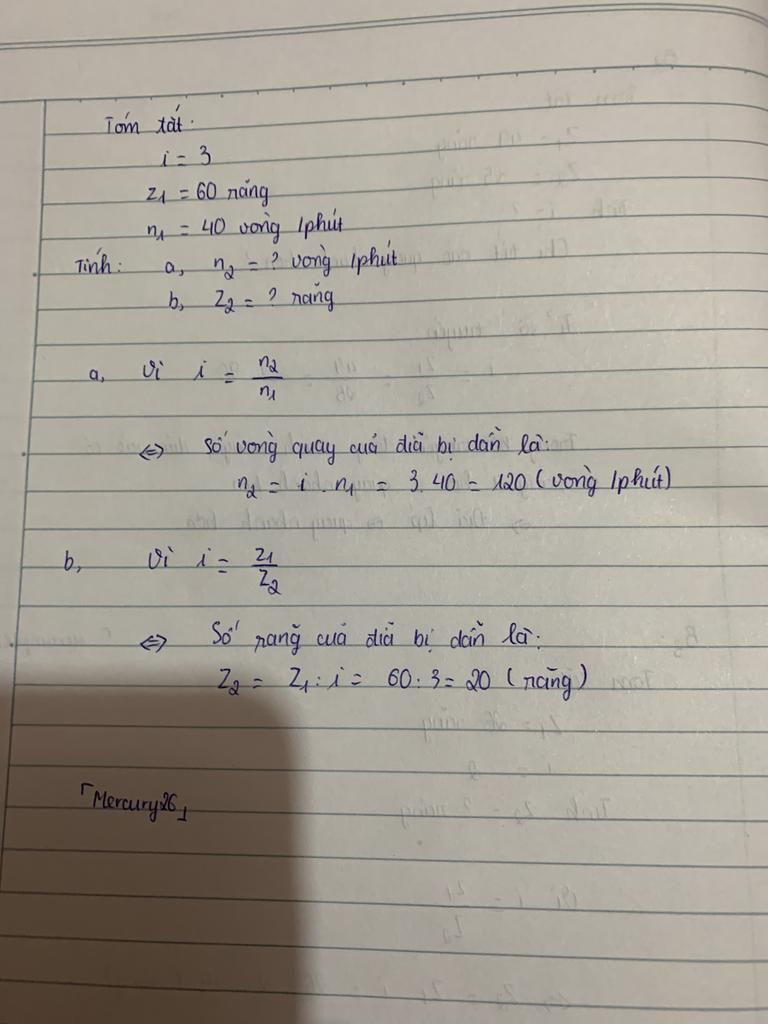 Tóm tắt:
i = 3
z1 = 60 răng
n1 = 40 vòng /phút
Tính: a, n2 = ? vòng /phút
b, Z2 = ? răng
a, Vì i = n2/n1
<=> Số vòng quay của đĩa bị dẫn là:
n2 = i . n1 = 3 . 40 = 120 ( vòng /phút)
b, Vì i = z1/Z2
<=> Số răng của đĩa bị dẫn là:
Z2 = Z1 : i = 60 : 3 = 20 ( răng )
「Mercury26」